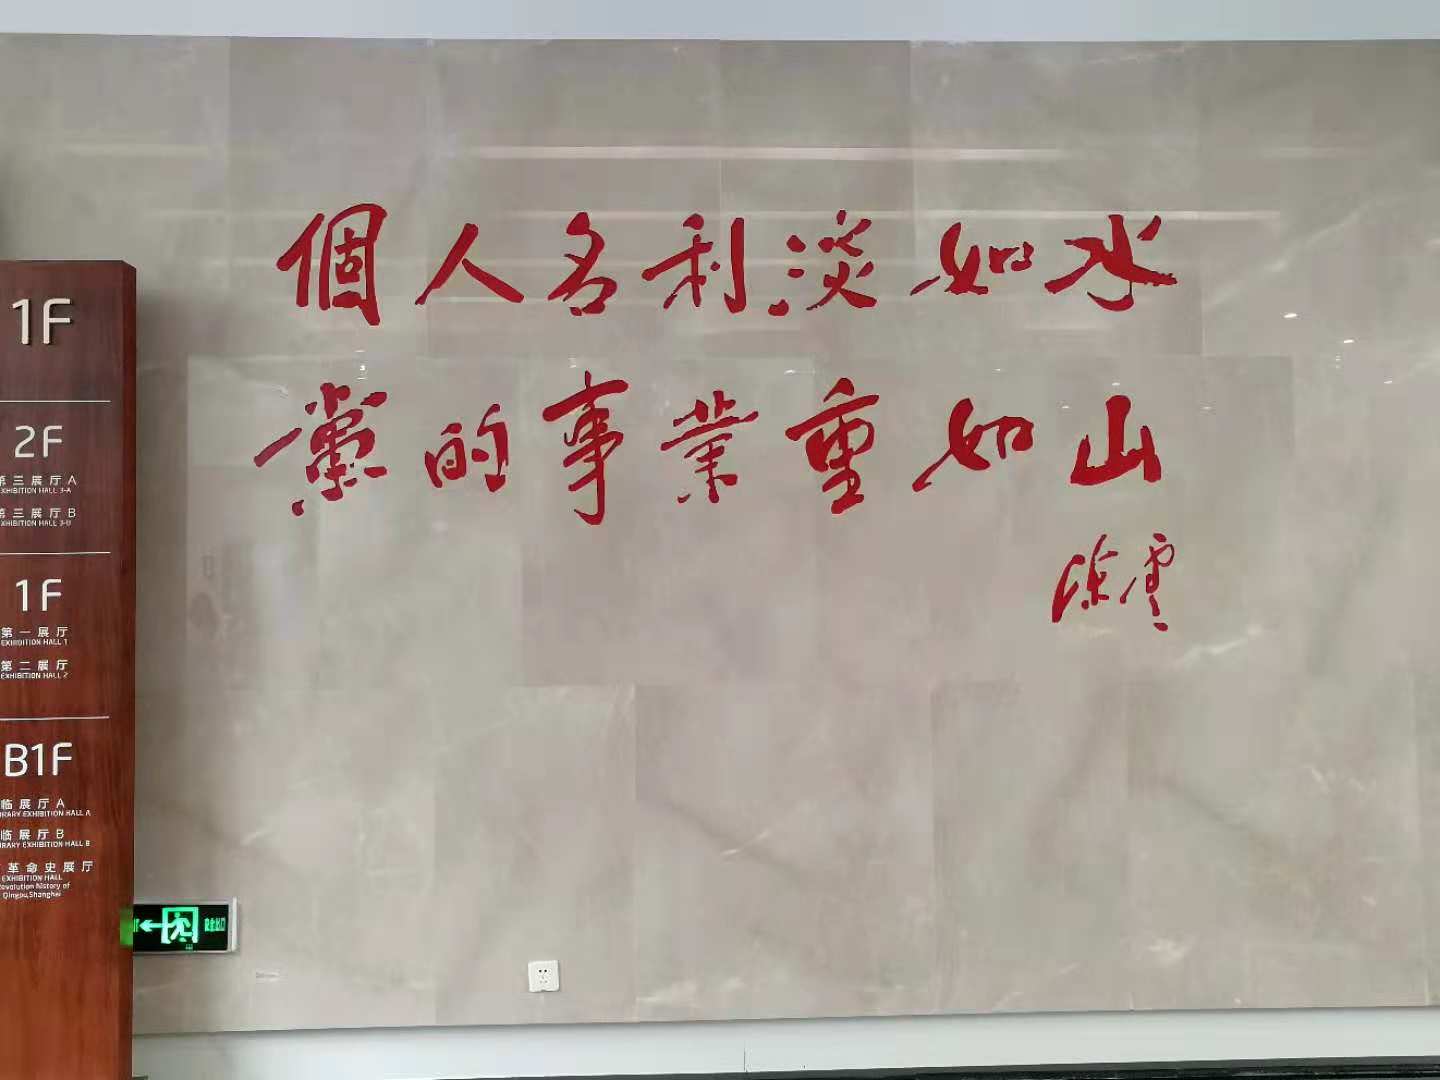 個人名利淡如水
黨的事業重如山
陳雲
1F
2F
第三展厅 A
EXHIBITION HALL 3-A
第三展厅 B
EXHIBITION HALL 3-B
1F
第一展厅
EXHIBITION HALL 1
第二展厅
EXHIBITION HALL 2
B1F
临展厅 A
RARY EXHIBITION HALL A
临展厅 B
RARY EXHIBITION HALL B
革命史展厅
EXHIBITION HALL
Revolution history of
Qingpu,Shanghai